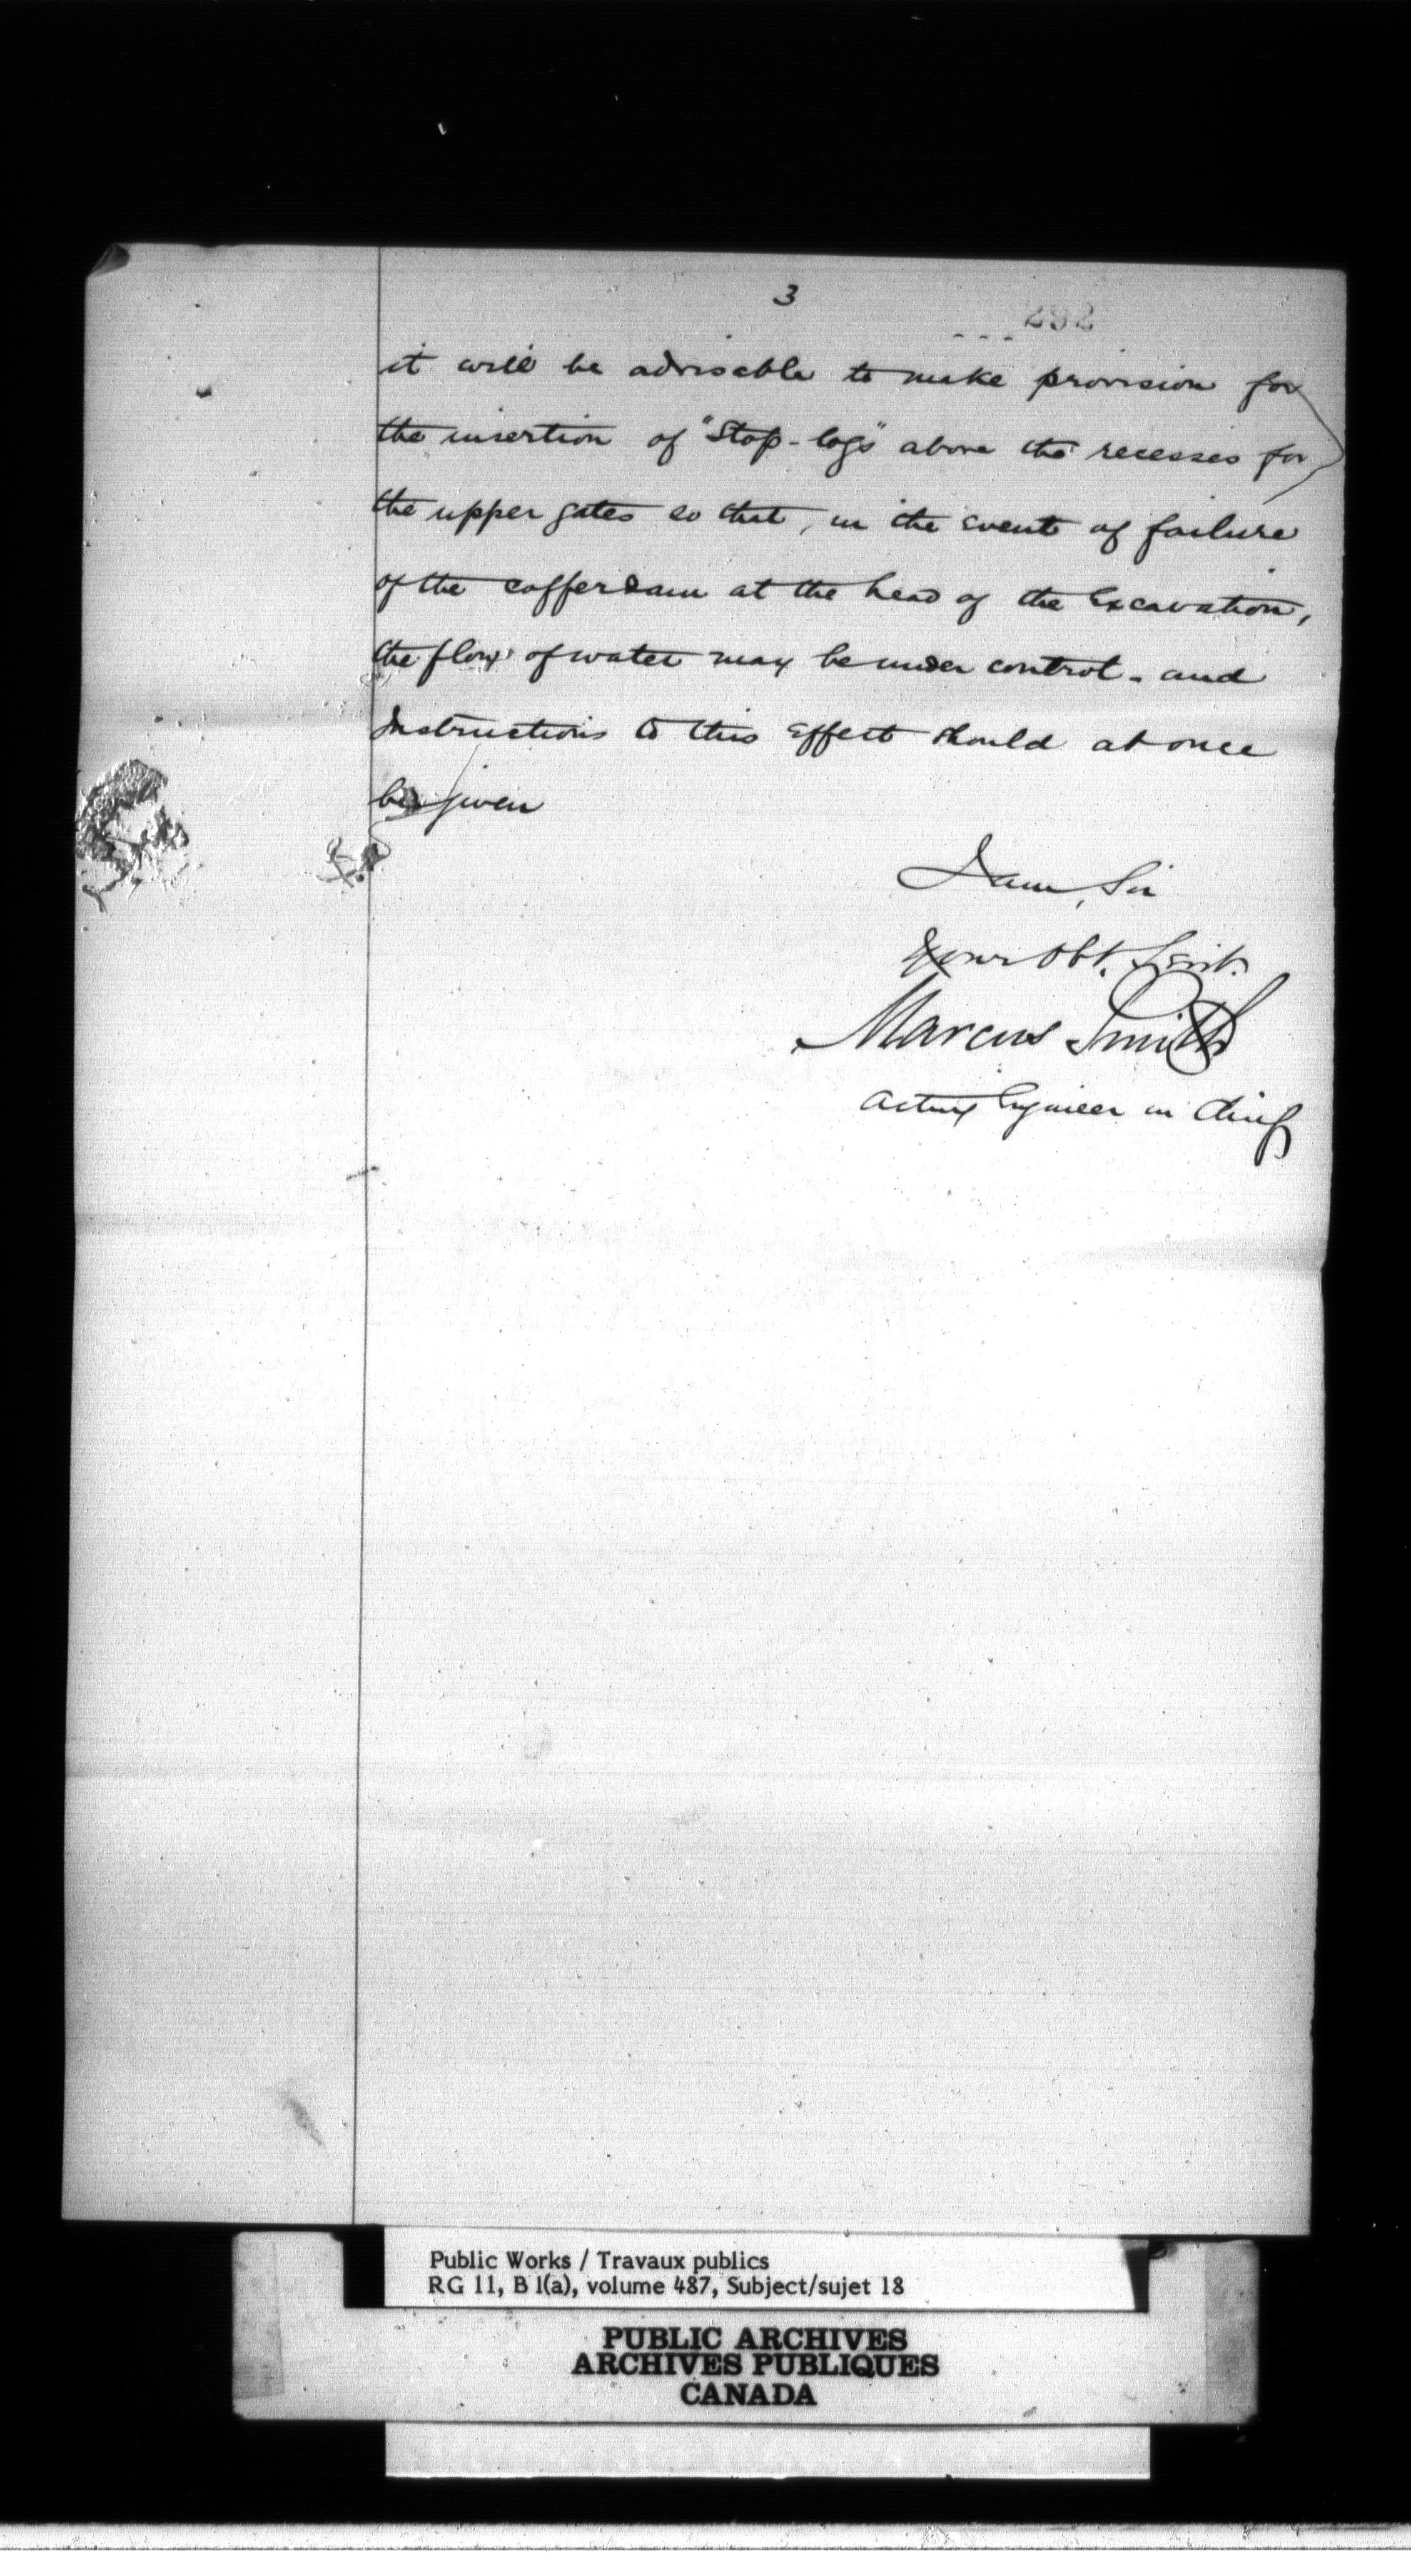 3
292
it will be advisable to make provision for
the insertion of "Stop-logs" above the recesses for
the upper gates so that, in the event of failure
of the cofferdam at the head of the Excavation,
the flow of water may be under control - and
Instructions to this effect should at once
be given
I am, Sir
Your Obt. Servt.
Marcus Smith
Acting Engineer in Chief
Public Works / Travaux publics
RG 11, B 1(a), volume 487, Subject/sujet 18
PUBLIC ARCHIVES
ARCHIVES PUBLIQUES
CANADA